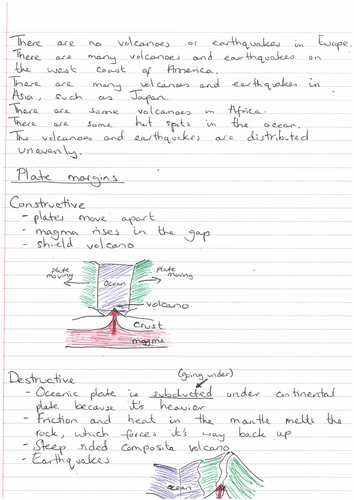 There are no volcanoes or earthquakes in Europe.
There are many volcanoes and earthquakes on
the west coast of America.
There are many volcanoes and earthquakes in
Asia, such as Japan.
There are some volcanoes in Africa.
There are some hot spots in the ocean.
The volcanoes and earthquakes are distributed
unevenly.
Plate margins
Constructive
- plates move apart
- magma rises in the gap
- shield volcano
plate moving
ocean
plate moving
volcano
crust
magma
(going under)
Destructive
- Oceanic plate is subducted under continental
plate because it's heavier
- Friction and heat in the mantle melts the
rock, which forces it's way back up
- Steep sided composite volcano
- Earthquakes
ocean